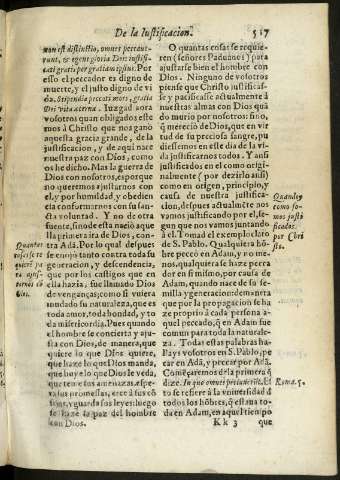 De la Iustificacion.
517
non est distinctio, omnes peccaue-
runt, & egent gloria Dei: iustifi-
cati gratis per gratiam ipsius. Por
esso el peccador es digno de
muerte, y el justo digno de vi
da. Stipendia peccati mors, gratia
Dei vita æterna. Iuzgad aora
vosotros quan obligados este
mos à Christo que nos ganò
aquesta gracia grande, de la
justificacion, y de aqui nace
nuestra paz con Dios, como
os he dicho. Mas la guerra de
Dios con nosotros, es porque
no queremos ajustarnos con
el, y por humildad, y obedien
cia conformarnos con su san-
cta voluntad. Y no de otra
fuente, sino desta nació aque
lla primera ira de Dios, con-
tra Adã. Por lo qual despues
se enojò tanto contra toda su
generacion, y descendencia,
que por los castigos que en
ella hazia, fue llamado Dios
de venganças; como si vuiera
mudado su naturaleza, que es
toda amor, toda bondad, y to
da misericordia. Pues quando
el hombre se conuierte y aju-
sta con Dios, de manera, que
quiere lo que Dios quiere,
que haze lo que Dios manda,
que huye lo que Dios le veda,
que teme sus amenazas, espe-
ra sus promessas, cree à sus cõ
sejos, y guarda sus leyes: luego
se haze la paz del hombre
con Dios.
O quantas cosas se requie-
ren (señores Paduanos) para
ajustarse bien el hombre con
Dios. Ninguno de vosotros
piense que Christo justificas-
se y pacificasse actualmente à
nuestras almas con Dios quã
do murio por nosotros: sino,
q̃ mereciò de Dios, que en vir
tud de su preciosa sangre, pu
diessemos en este dia de la vi
da justificarnos todos. Y ansi
justificados en el originalmen
te (por dezirlo ansi)
como en origen, principio, y
causa de nuestra justifica-
cion, despues actualmẽte nos
vamos justificando por el, se-
gun que nos vamos juntando
a el. Tomad el exemplo claro
de S. Pablo. Qualquiera hõ-
bre peccò en Adam, y no me-
nos, qualquiera se haze pecca
dor en si mismo, por causa de
Adam, quando nace de su se-
milla y generacion: de mane-
ra que por la propagacion se ha
ze propriò à cada persona a-
quel peccado, q̃ en Adam fue
comun para toda la naturale-
za. Todas estas palabras ha-
llays vosotros en S. Pablo, pe
car en Adã, y peccar por Adã.
Començaremos de la primera q̃
dize. In quo omnes peccauerũt. Es
to se refiere à la vniuersidad d̃
todos los hõbres, q̃ estaua to-
da en Adam, en aquel tiempo
Quanto
como so-
mos justi
ficados
por Chri
sto.
Roma. 5.
Kk 3
que